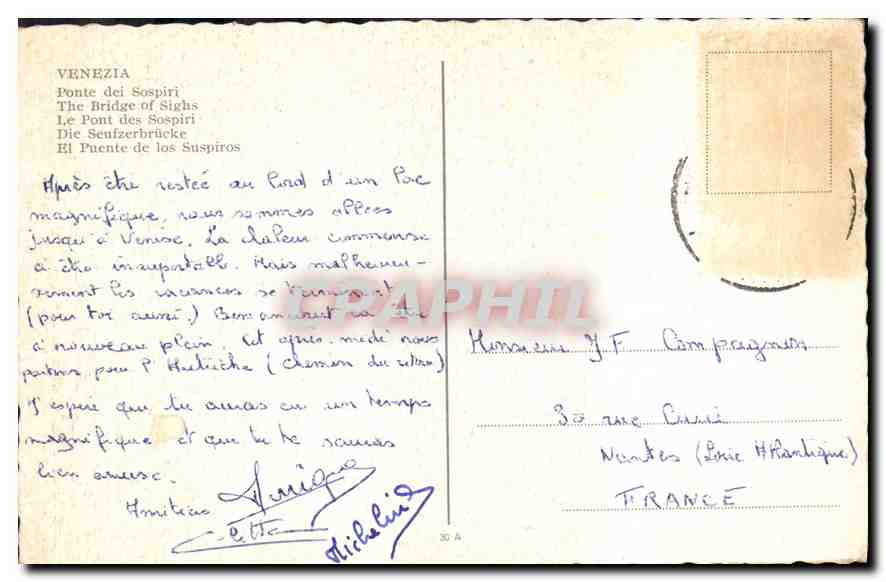 VENEZIA
Ponte dei Sospiri
The Bridge of Sighs
Le Pont des Sospiri
Die Seufzerbrücke
El Puente de los Suspiros
Après être restée au bord d'un lac
magnifique, nous sommes allées
jusqu'à Venise. La chaleur commense
à être insuportable. Mais malheureu-
sement les vacances se terminent
(pour toi aussi.) va être
à nouveau plein. Cet après-midi nous
partons pour l' (chemin du retour)
J'espère que tu auras eu un temps
magnifique et que tu te seras
bien amusé.
Amitiés
Michelin
LPAPHIL
Monsieur J F Compagnon
30 rue Curie
Nantes (Loire Atlantique)
FRANCE
30 A